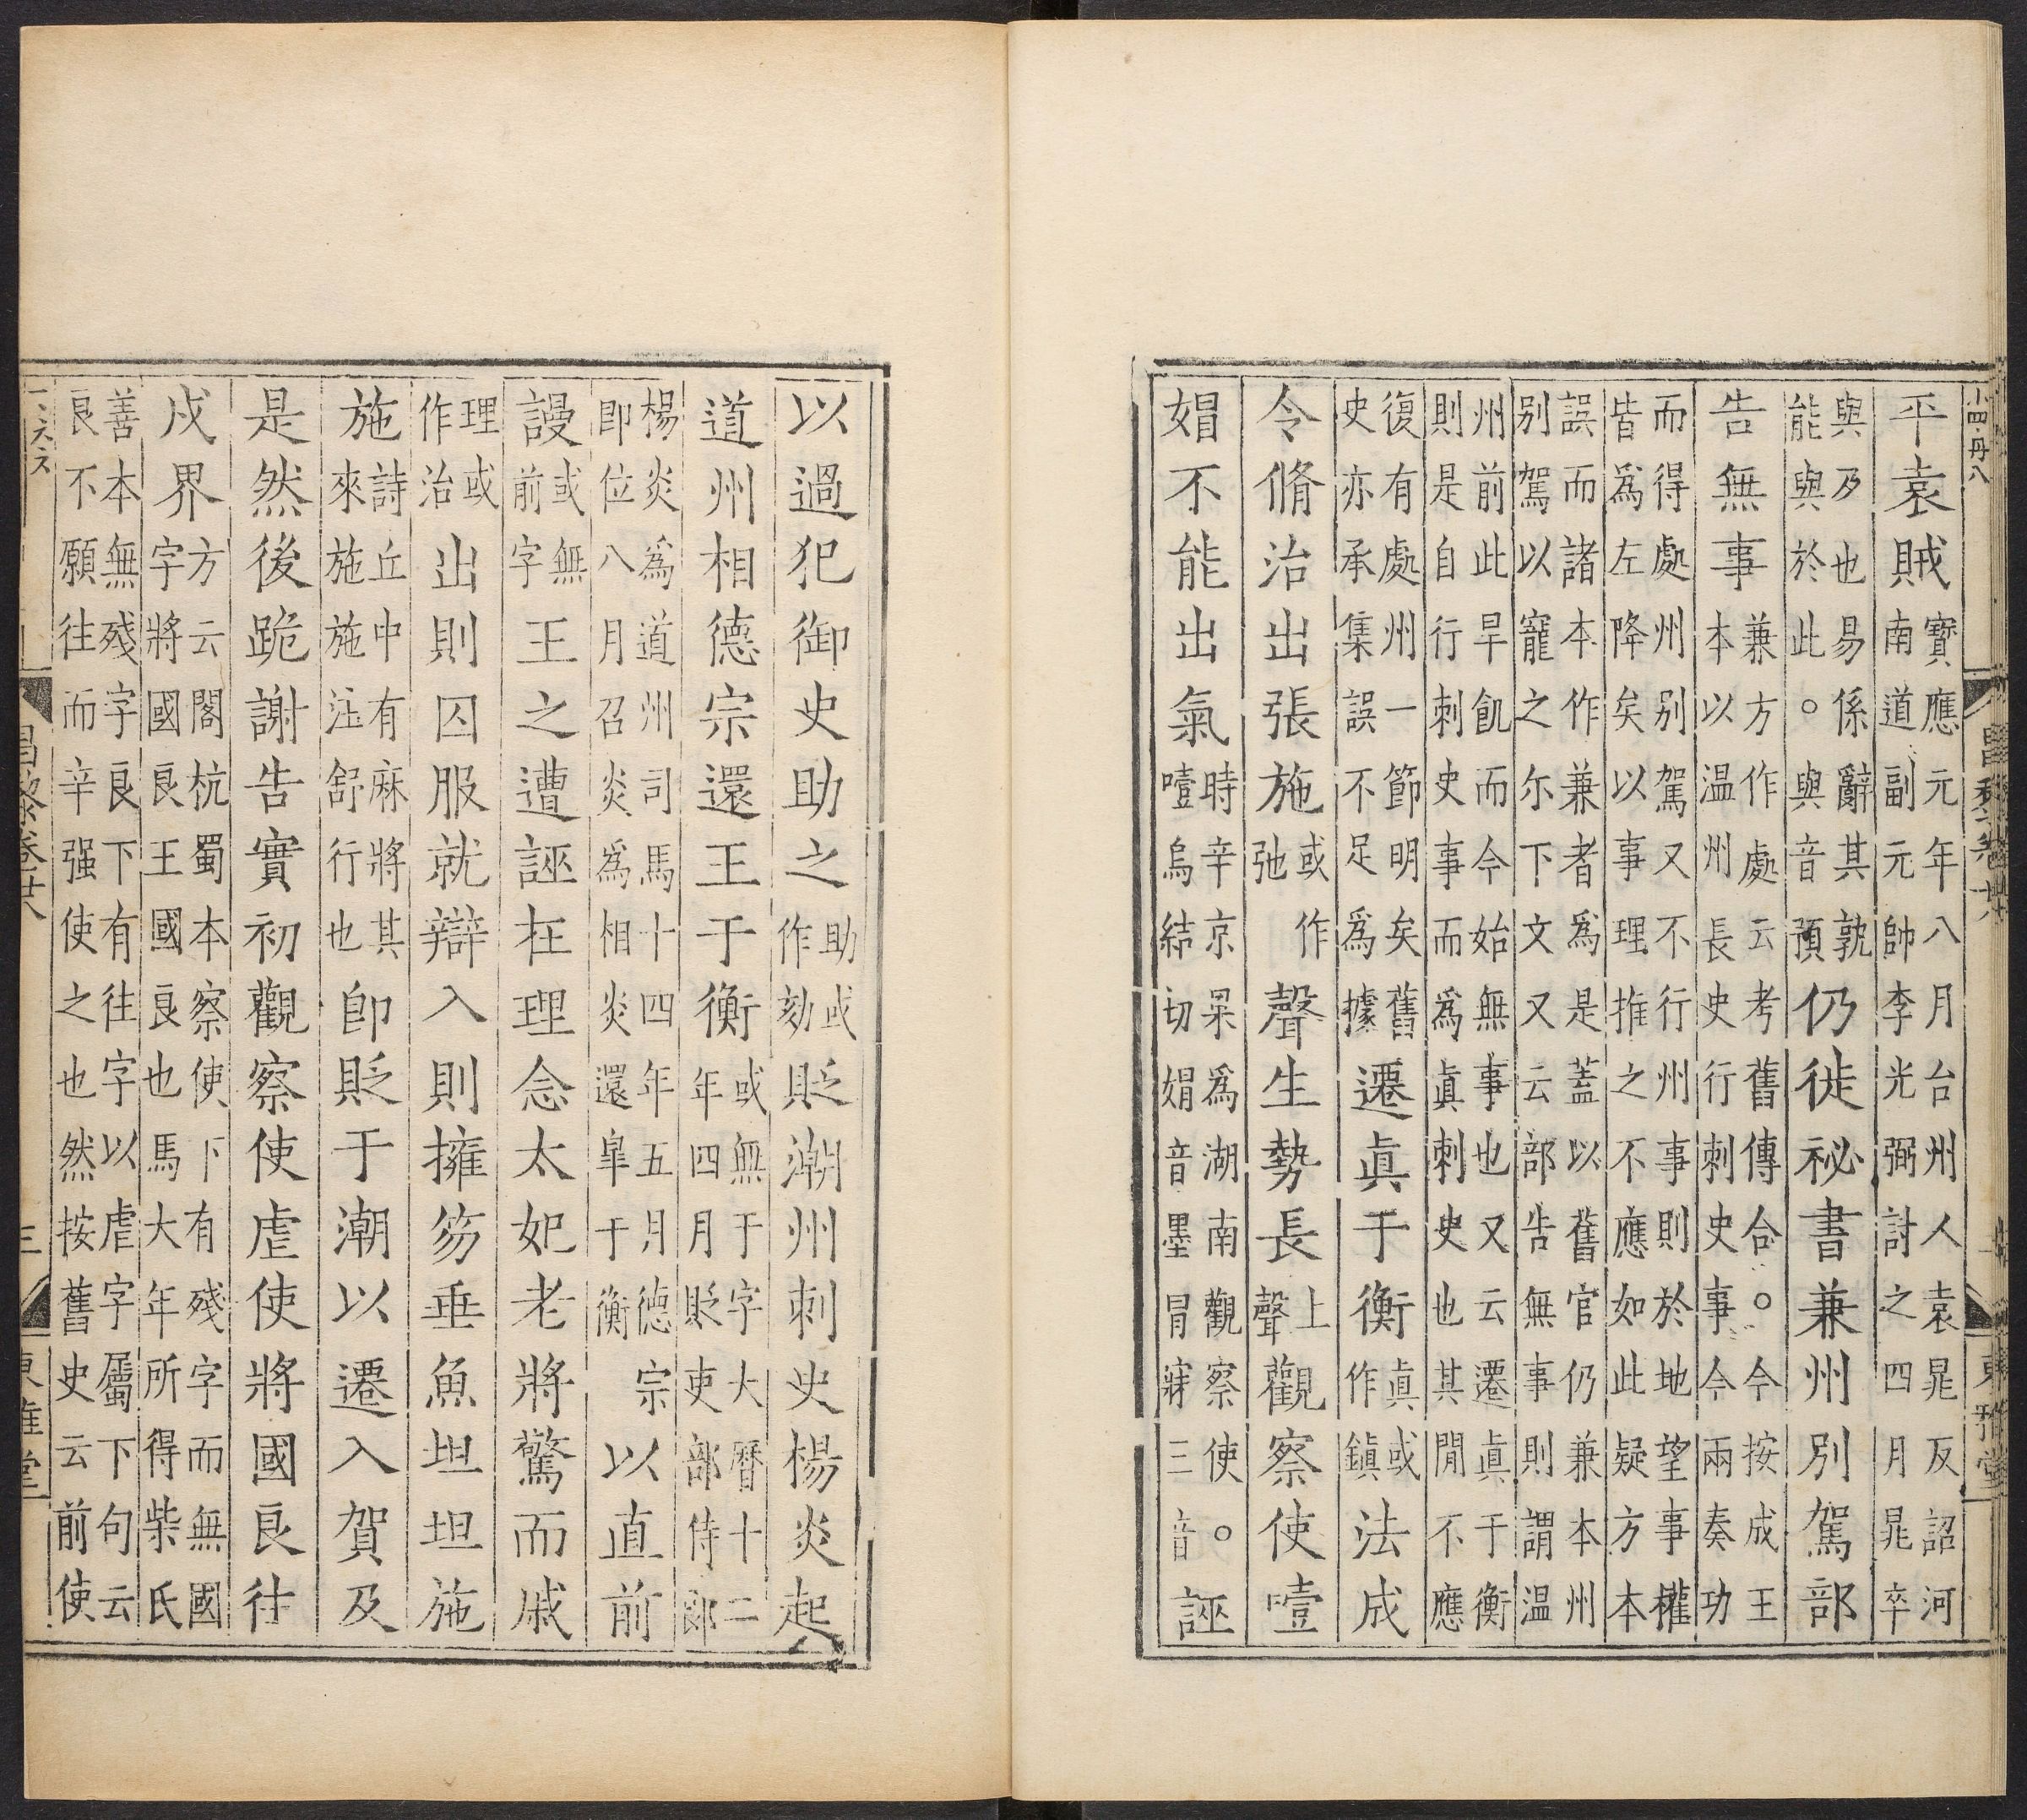 小四 丹八
昌黎卷廿八
東雅堂
平袁賊寶應元年八月台州人袁晁反詔河
南道副元帥李光弼討之四月晁卒
與及也易係辭其孰
能與於此○與音預仍徙祕書兼州別駕部
告無事兼方作處云考舊傳合○今按成王
本以温州長史行刺史事今兩奏功
而得處州别駕又不行州事則於地望事權
皆爲左降矣以事理推之不應如此疑方本
誤而諸本作兼者爲是蓋以舊官仍兼本州
别駕以寵之尓下文又云部告無事則謂温
州前此旱飢而今始無事也又云遷眞于衡
則是自行刺史事而爲眞刺史也其閒不應
復有處州一節明矣舊
史亦承集誤不足爲據遷眞于衡眞或作鎮法成
令脩治出張施或作弛聲生勢長上聲觀察使噎
媢不能出氣時辛京杲爲湖南觀察使○
噎烏結切媢音墨冒寐三音誣
以過犯御史助之助或作劾貶潮州刺史楊炎起
道州相德宗還王于衡或無于字大曆十二
年四月貶吏部侍郎
楊炎爲道州司馬十四年五月德宗
即位八月召炎爲相炎還臯于衡以直前
謾或無前字王之遭誣在理念太妃老將驚而戚
理或作治出則囚服就辯入則擁笏垂魚坦坦施
施詩丘中有麻將其來施施注舒行也即貶于潮以遷入賀及
是然後跪謝告實初觀察使虐使將國良往
戍界方云閣杭蜀本察使下有殘字而無國
字將國良王國良也馬大年所得柴氏
善本無殘字良下有往字以虐字屬下句云
良不願往而辛强使之也然按舊史云前使
昌黎卷廿八
三
東雅堂